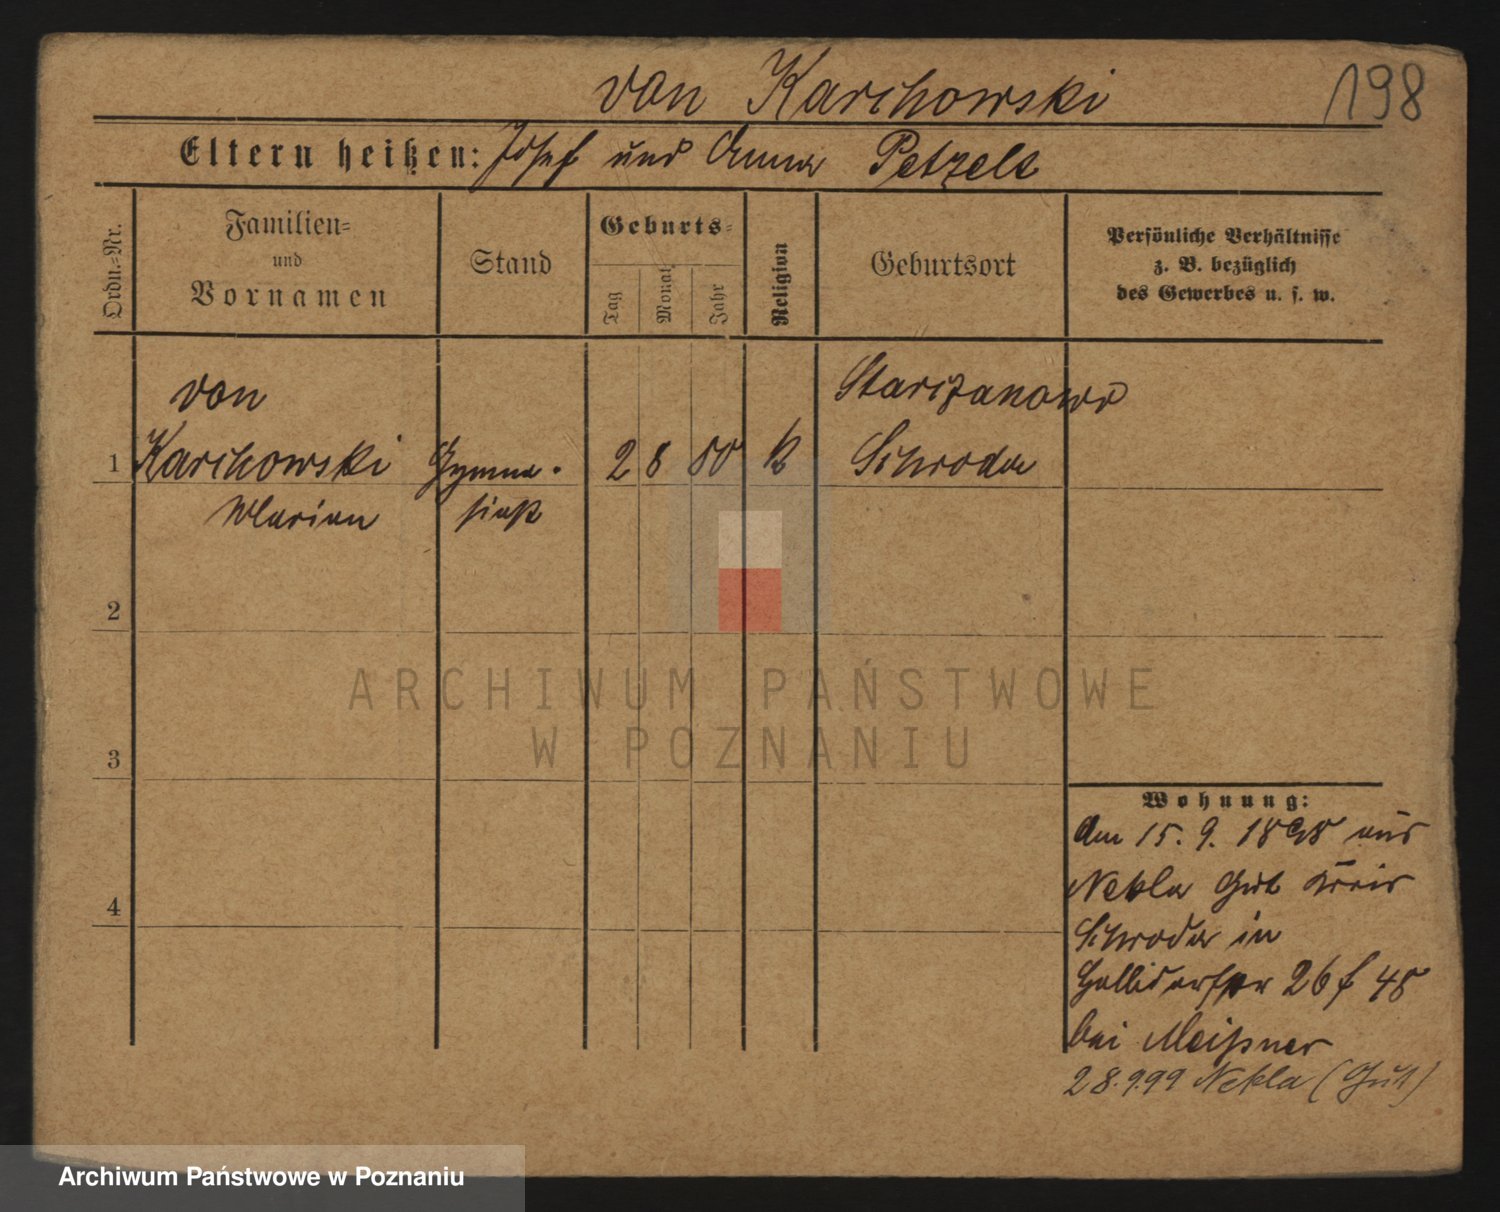 198
von Karchowski
Eltern heißen: Josef und Anna Petzelt
Ordn.-Nr.
Familien-
und
Vornamen
Stand
Geburts-
Tag
Monat
Jahr
Religion
Geburtsort
Persönliche Verhältnisse
z. B. bezüglich
des Gewerbes u. s. w.
von
Starczanowo
1 Karchowski Gymna- 2 8 80 k Schroda
Marian siast
2
3
4
Wohnung:
Am 15. 9. 1898 aus
Nekla Gut Kreis
Schroda in
26 48
bei Meißner
28.9.99 Nekla (Gut)
ARCHIWUM PAŃSTWOWE
W POZNANIU
Archiwum Państwowe w Poznaniu